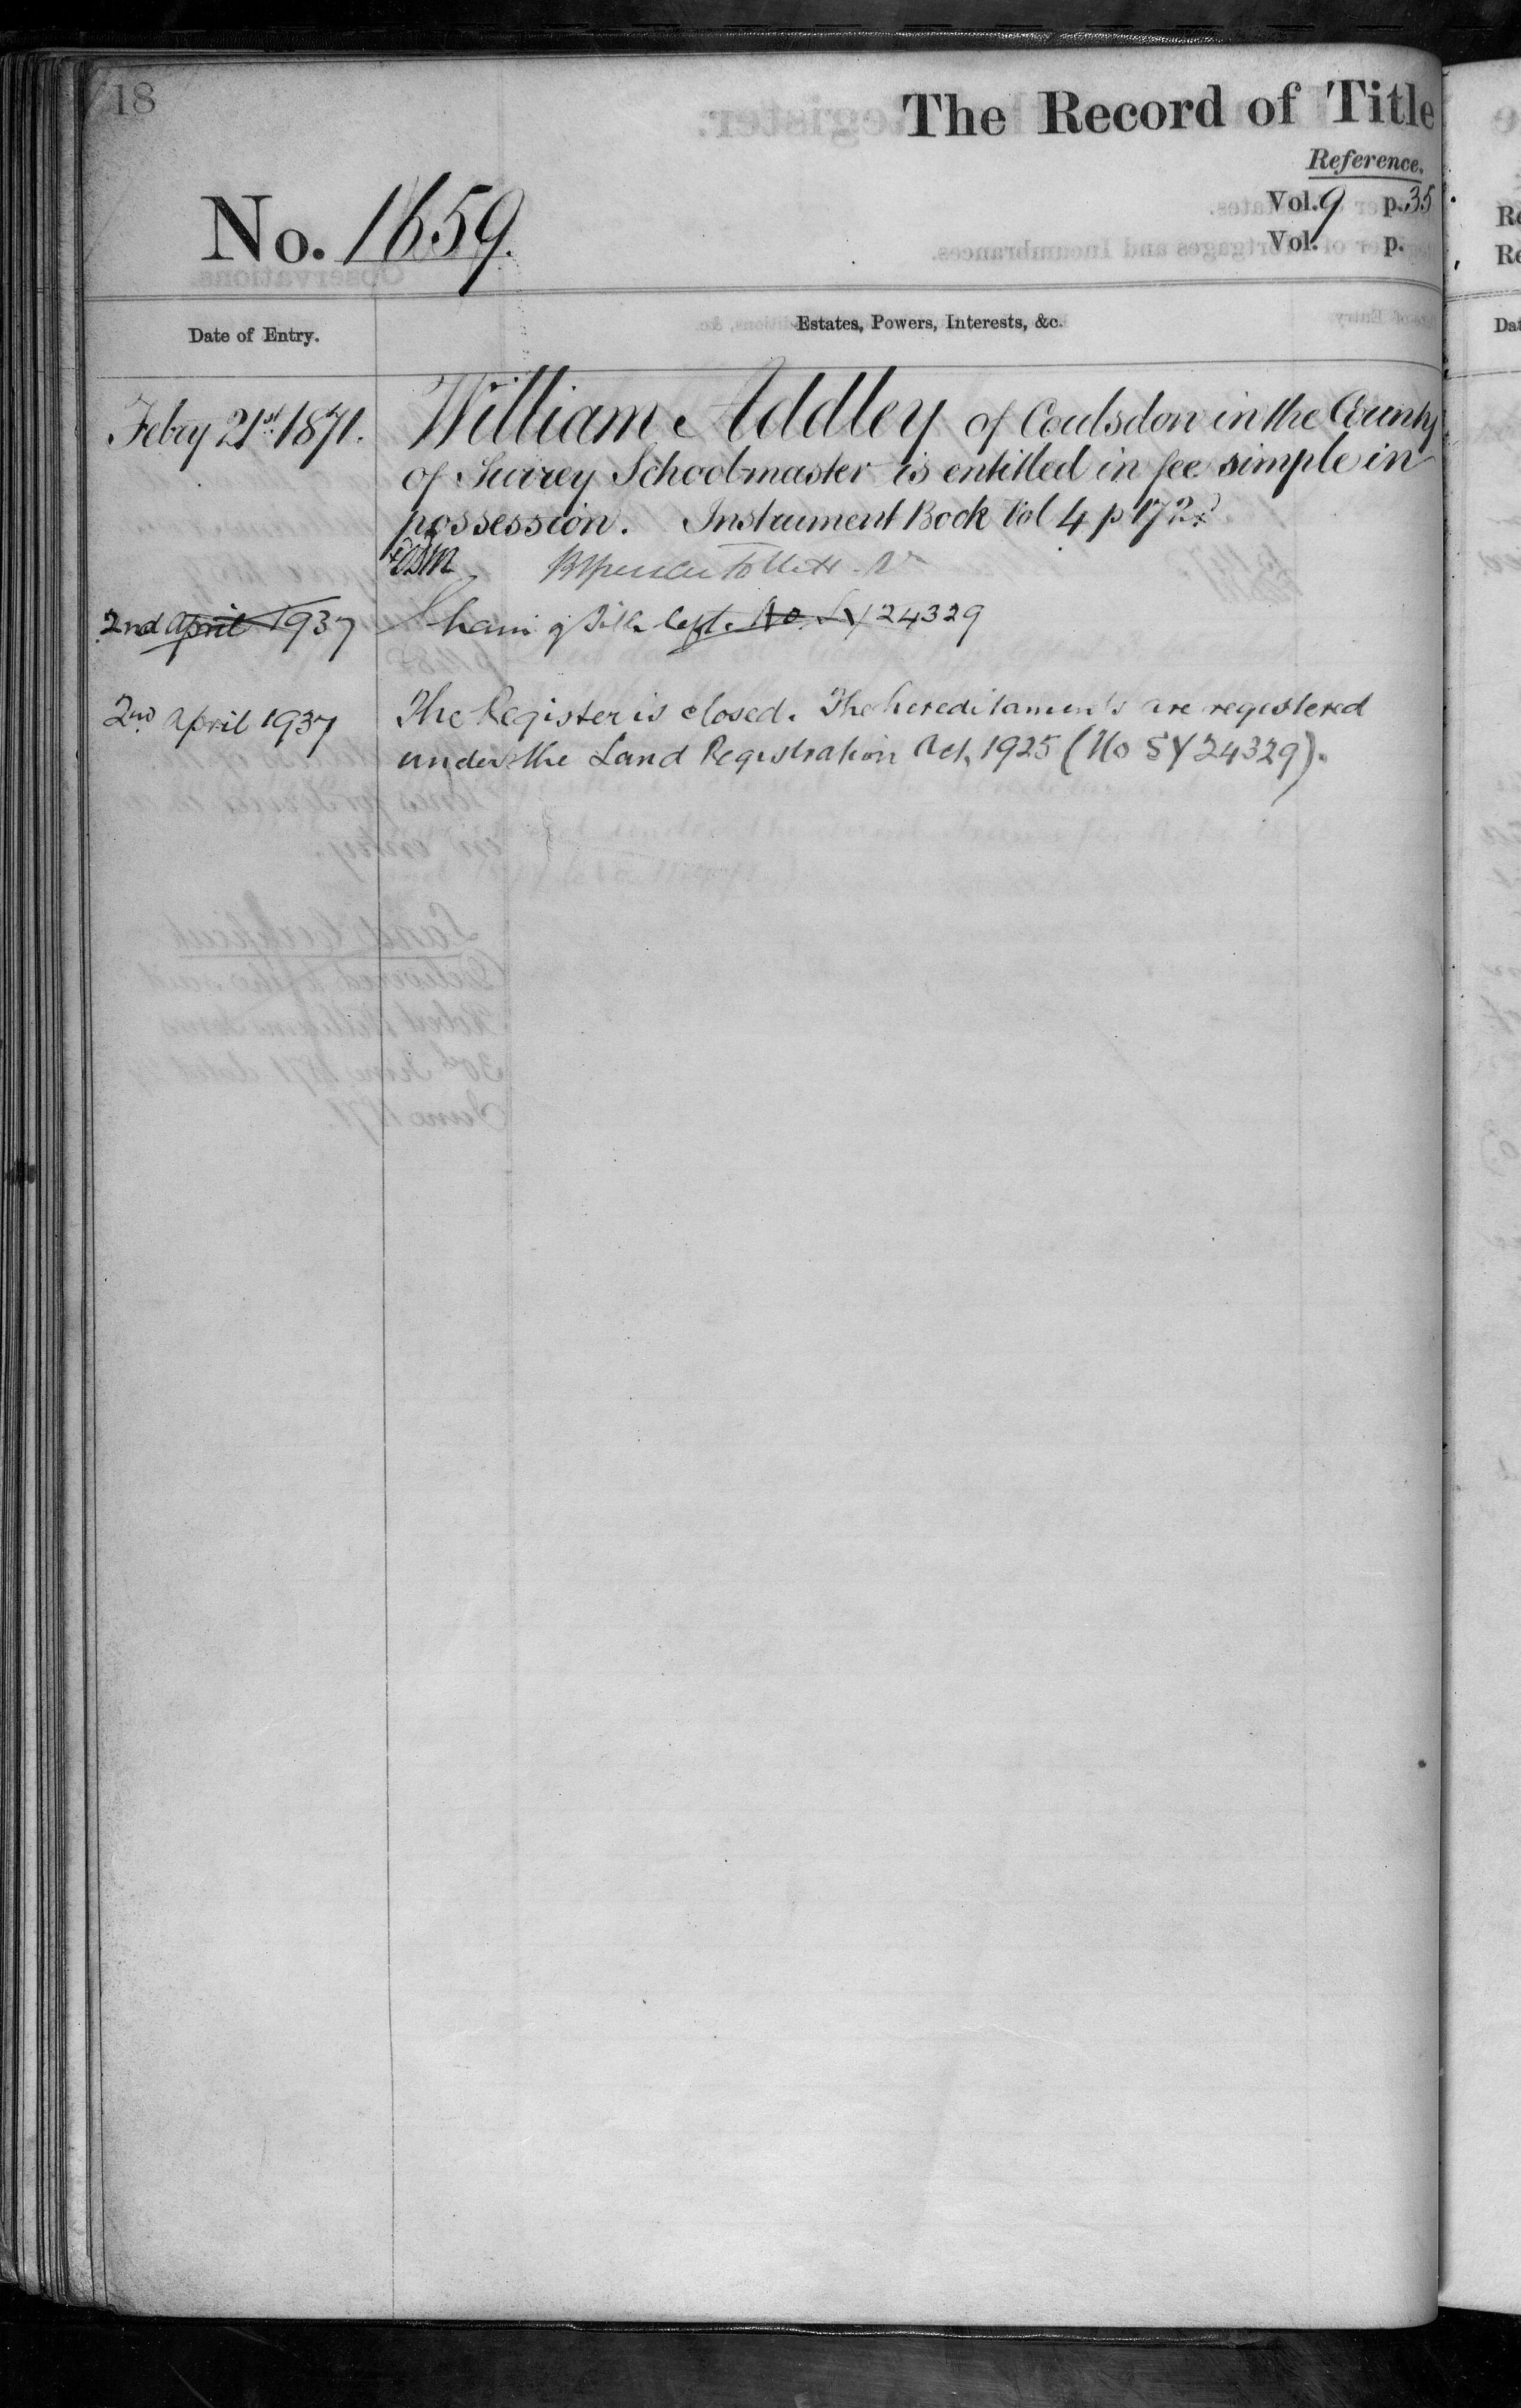 18
The Record of Title
Reference.
No. 1659.
Vol. 9 p. 35
Vol. p.
Date of Entry.
Estates, Powers, Interests, &c.
Febry 21st 1871.
William Addley of Coulsdon in the County
of Surrey Schoolmaster is entitled in fee simple in
possession. Instrument Book Vol 4 p 172
2nd April 1937
No. SY 24329
2nd April 1937
The Register is closed. The hereditaments are registered
under the Land Registration Act, 1925 (No SY 24329).